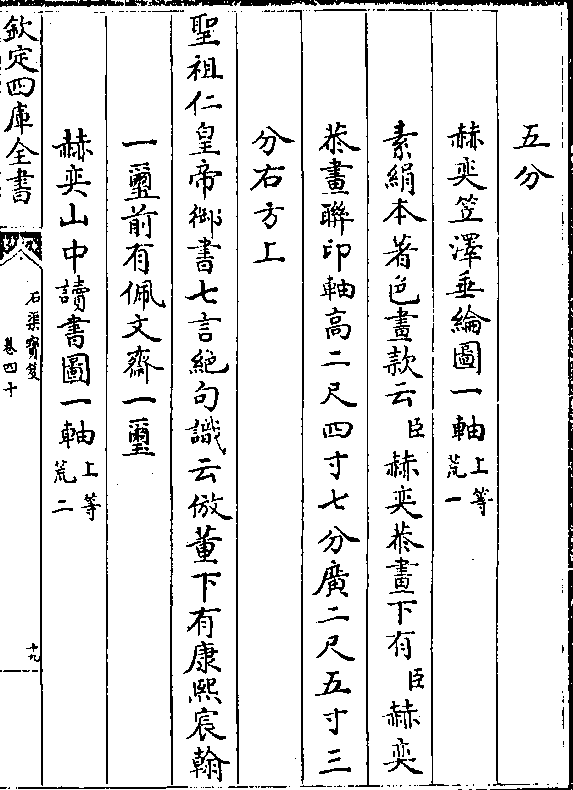 五分
赫奕笠澤垂綸圖一軸上等荒一
素絹本著色畫款云臣赫奕恭畫下有臣赫奕
恭畫聯印軸高二尺四寸七分廣二尺五寸三
分右方上
聖祖仁皇帝御書七言絕句識云倣董下有康熙宸翰
一璽前有佩文齋一璽
赫奕山中讀書圖一軸上等荒二
欽定四庫全書
石渠寶笈
卷四十
十九